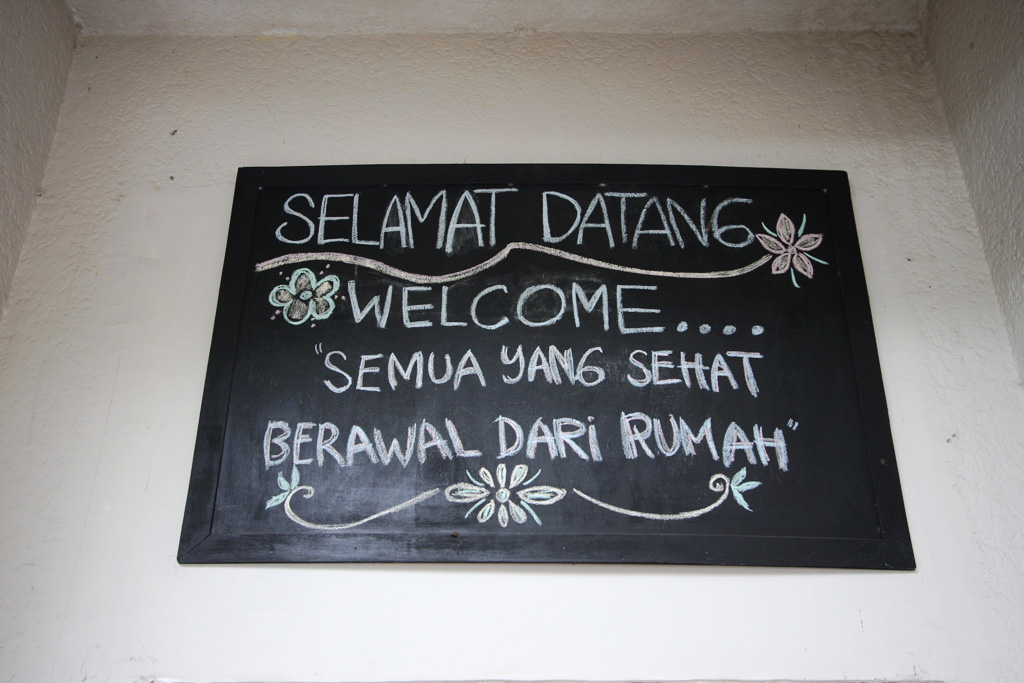 SELAMAT DATANG
WELCOME....
"SEMUA YANG SEHAT
BERAWAL DARi RUMAH"